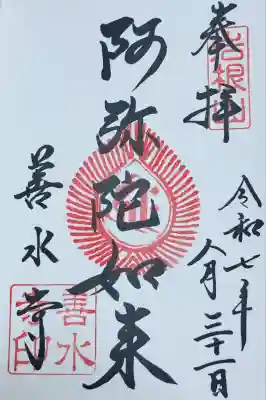 奉拝
岩根山
令和七年
八月三十一日
阿弥陀如来
善水寺
善水
寺印